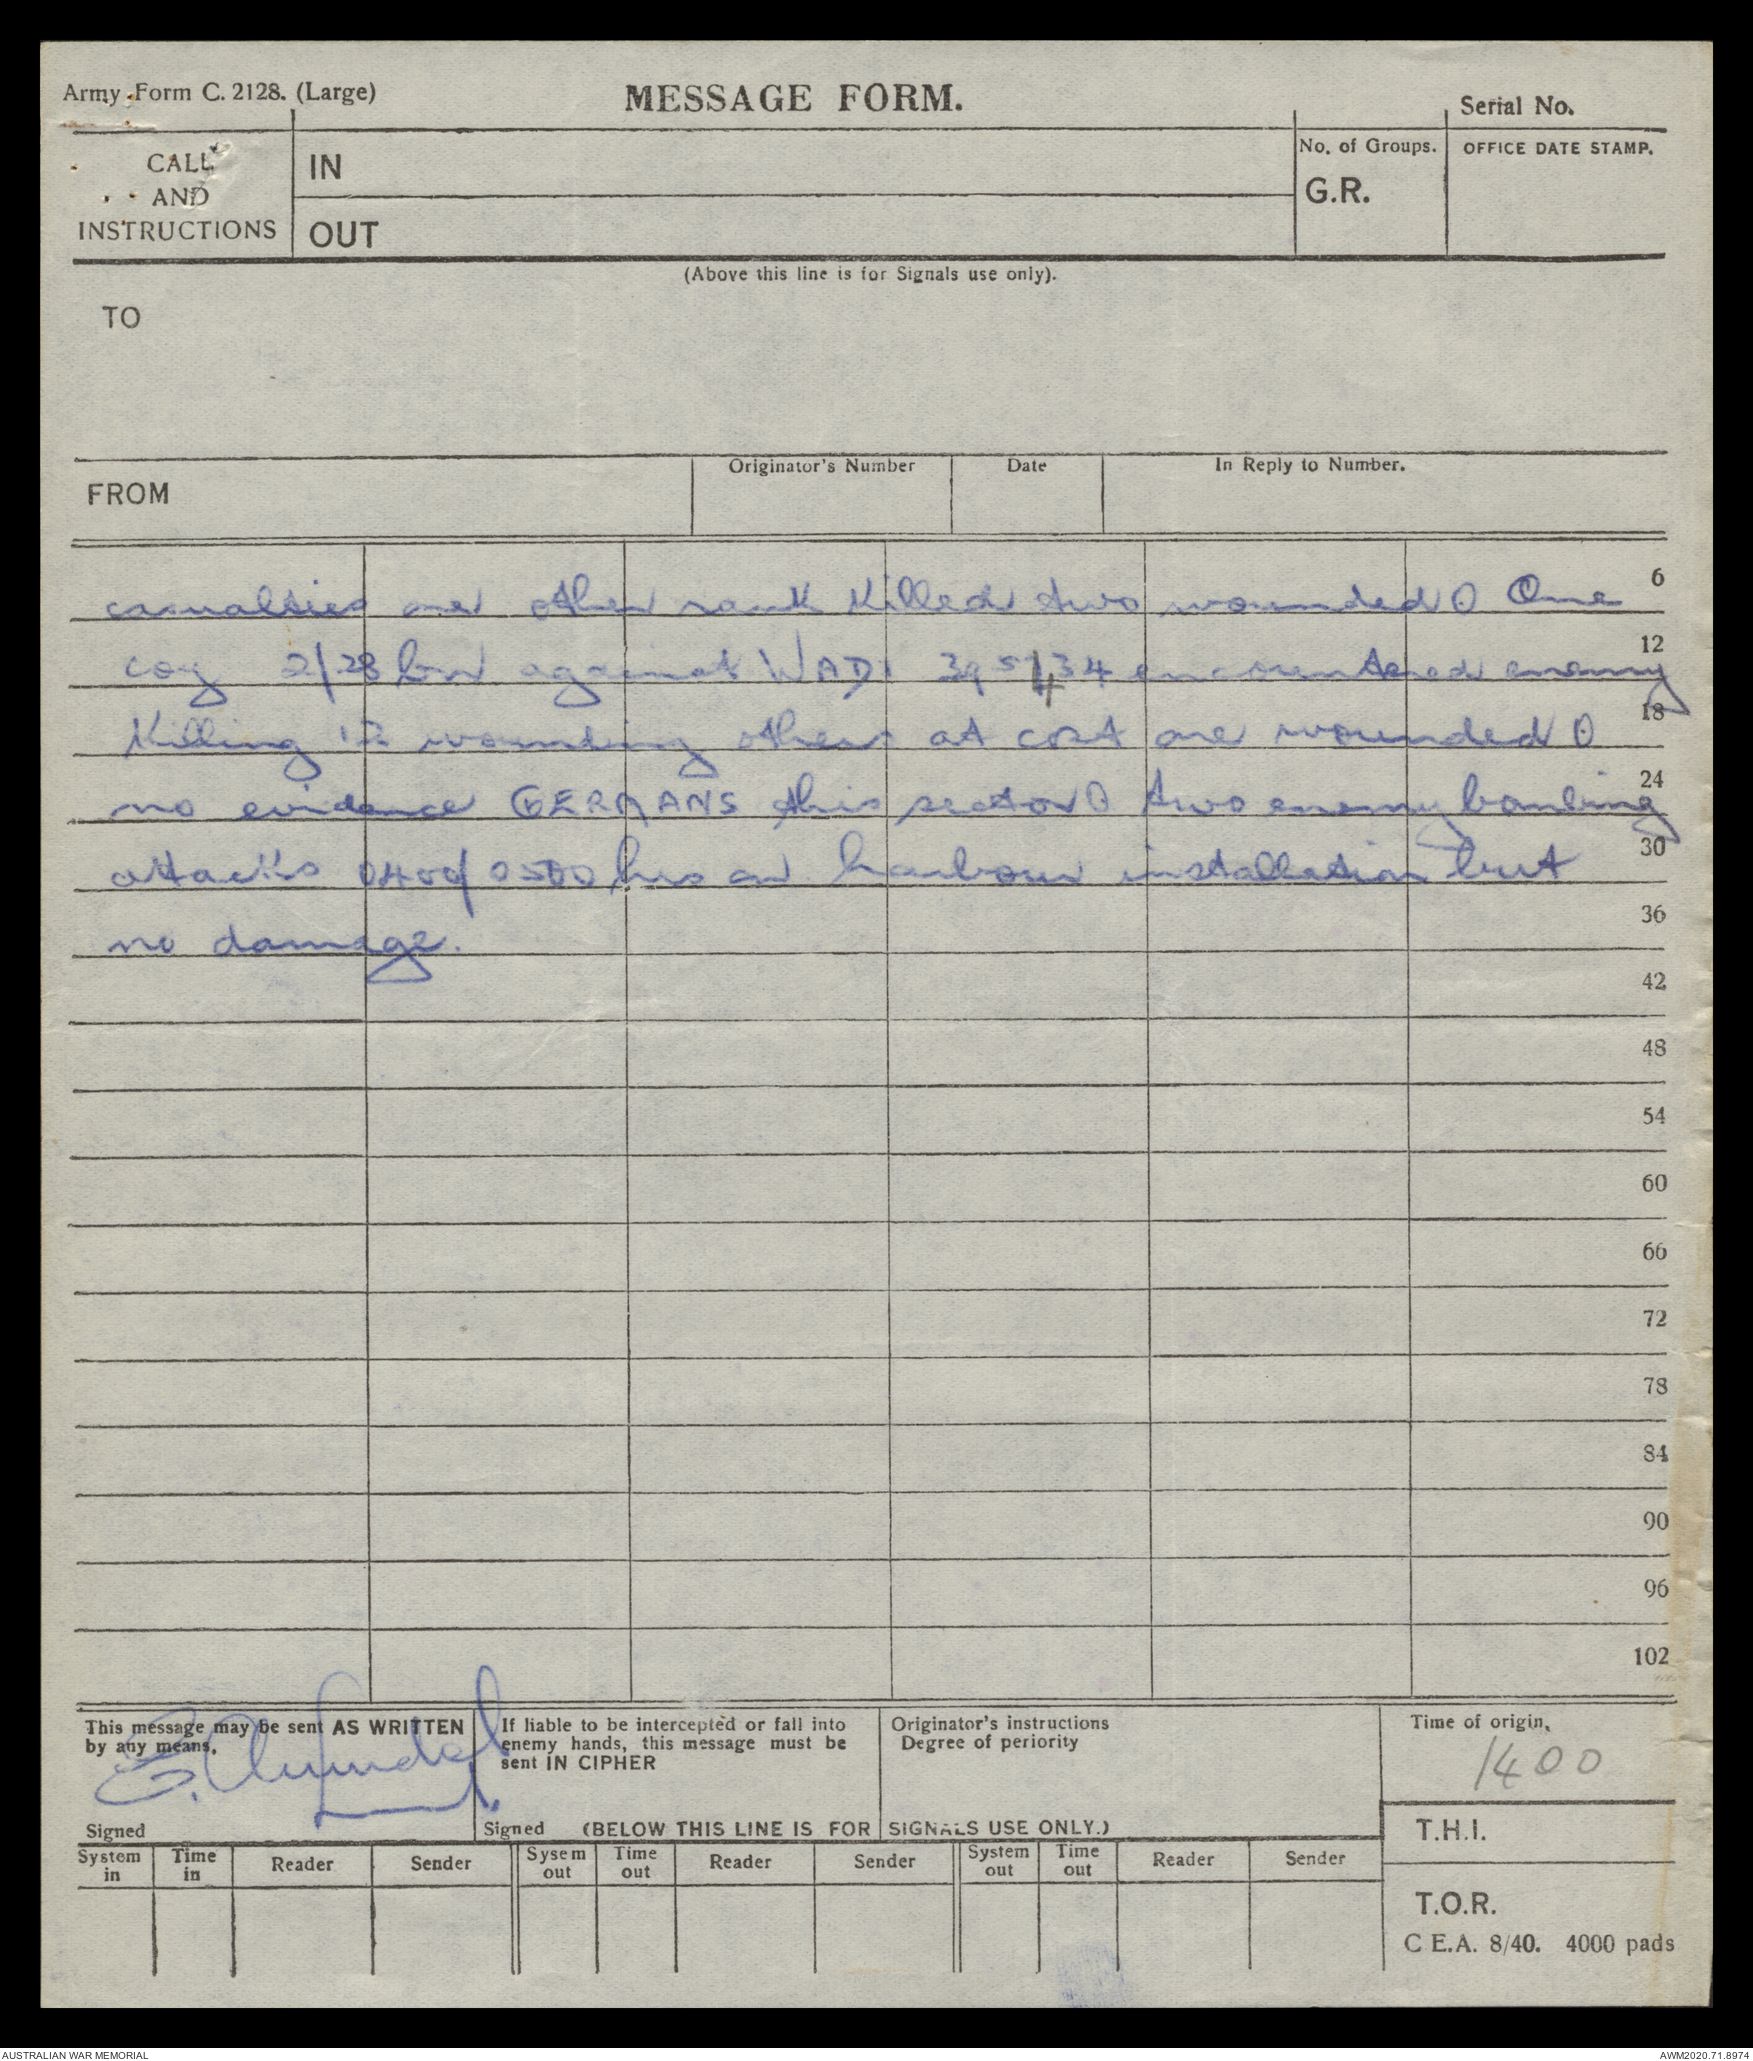 Army Form C. 2128. (Large)
MESSAGE FORM.
Serial No.
CALL
AND
INSTRUCTIONS
IN
OUT
No. of Groups.
G.R.
OFFICE DATE STAMP.
(Above this line is for Signals use only).
TO
FROM
Originator's Number
Date
In Reply to Number.
casualties one other rank killed two wounded O One
6
coy 2/28 bn against WADI encountered enemy
12
killing 12 wounding others at cost one wounded O
18
no evidence GERMANS this sector O two enemy bombing
24
attacks 0400/0500 hrs on harbour installation but
30
no damage.
36
42
48
54
60
66
72
78
84
90
96
102
This message may be sent AS WRITTEN
by any means.
Signed
If liable to be intercepted or fall into
enemy hands, this message must be
sent IN CIPHER
Signed (BELOW THIS LINE IS FOR SIGNALS USE ONLY.)
Originator's instructions
Degree of periority
Time of origin.
1400
T.H.I.
T.O.R.
System in
Time in
Reader
Sender
Sysem out
Time out
Reader
Sender
System out
Time out
Reader
Sender
C E.A. 8/40. 4000 pads
AUSTRALIAN WAR MEMORIAL
AWM2020.71.8974